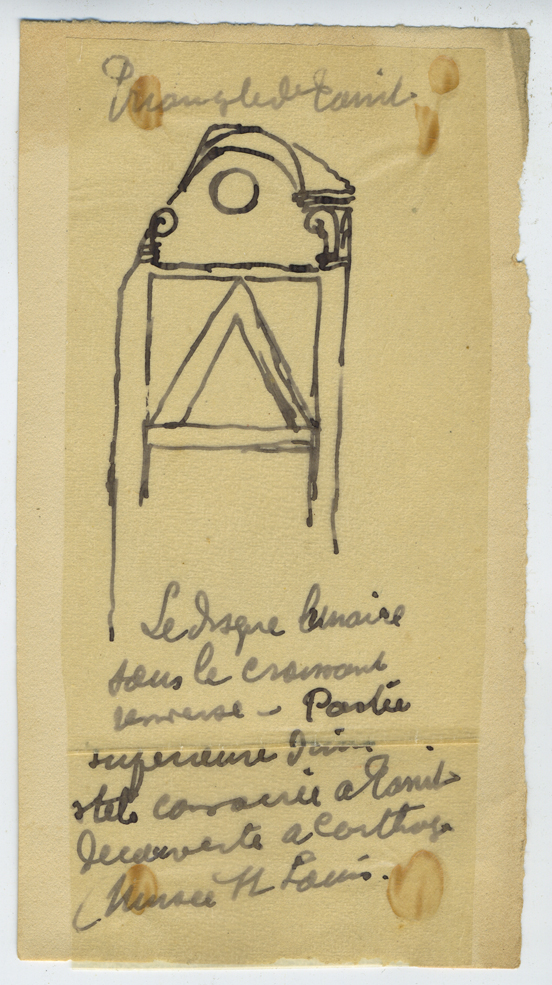 Triangle de Tanit
Le disque lunaire
sous le croissant
renversé - Partie
superieure d'une
stele consacrée a Tanit
decouverte a Carthage
(Musée St Louis.